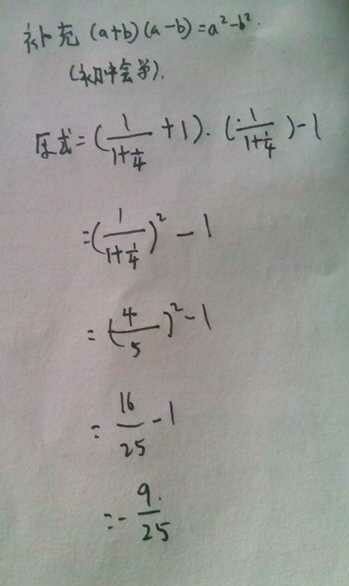 补充 (a+b)(a-b)=a²-b².
(初中会学).
原式=(1/(1+1/4)+1)·(1/(1+1/4))-1
=(1/(1+1/4))²-1
=(4/5)²-1
=16/25-1
=-9/25